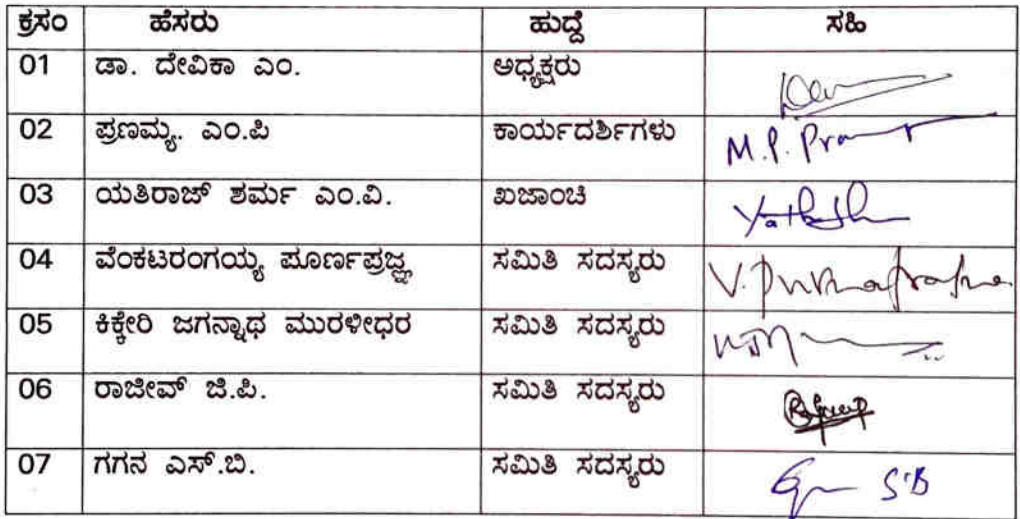 ಕ್ರಸಂ ಹೆಸರು ಹುದ್ದೆ ಸಹಿ
01 ಡಾ. ದೇವಿಕಾ ಎಂ. ಅಧ್ಯಕ್ಷರು
02 ಪ್ರಣಮ್ಯ. ಎಂ.ಪಿ ಕಾರ್ಯದರ್ಶಿಗಳು M.P.
03 ಯತಿರಾಜ್ ಶರ್ಮ ಎಂ.ವಿ. ಖಜಾಂಚಿ
04 ವೆಂಕಟರಂಗಯ್ಯ ಪೂರ್ಣಪ್ರಜ್ಞ ಸಮಿತಿ ಸದಸ್ಯರು V.
05 ಕಿಕ್ಕೇರಿ ಜಗನ್ನಾಥ ಮುರಳೀಧರ ಸಮಿತಿ ಸದಸ್ಯರು
06 ರಾಜೀವ್ ಜಿ.ಪಿ. ಸಮಿತಿ ಸದಸ್ಯರು
07 ಗಗನ ಎಸ್.ಬಿ. ಸಮಿತಿ ಸದಸ್ಯರು S.B